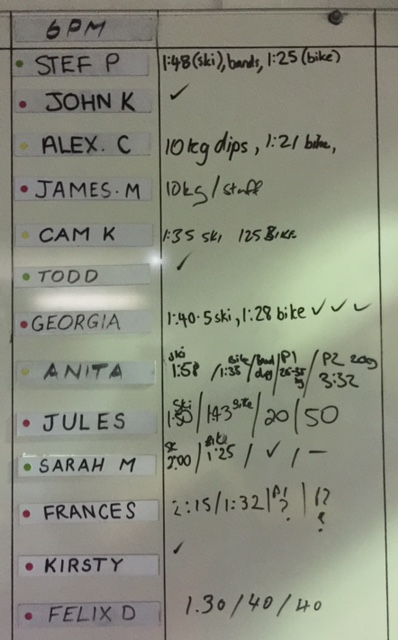 6PM
STEF P 1:48 (ski), bands, 1:25 (bike)
JOHN K ✓
ALEX. C 10kg dips, 1:21 bike,
JAMES. M 10kg/
CAM K 1:35 ski 125 Bike
TODD ✓
GEORGIA 1:40.5 ski, 1:28 bike ✓ ✓ ✓
ANITA ski 1:58 / Bike 1:35 / Band / P1 / P2 3:32
JULES Ski 1:50 / 1:43 Bike / 20 / 50
SARAH M 2:00 / Bike 1:25 / ✓ / —
FRANCES 2:15 / 1:32 | P1 ? | ?
KIRSTY ✓
FELIX D 1.30 / 40 / 40